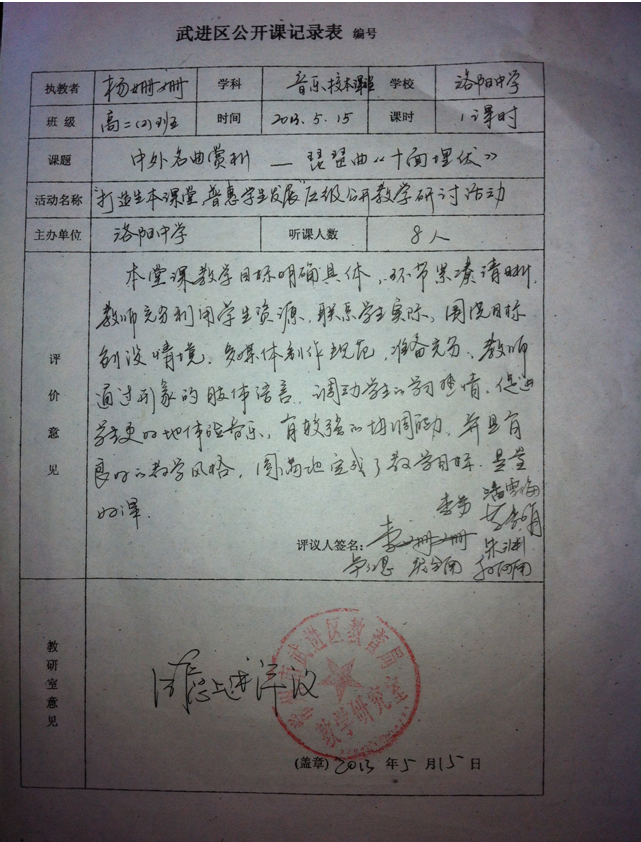 武进区公开课记录表 编号
执教者 杨姗姗 学科 音乐校本课程 学校 洛阳中学
班级 高二(2)班 时间 2013.5.15 课时 1课时
课题 中外名曲赏析——琵琶曲《十面埋伏》
活动名称 "打造生本课堂,普惠学生发展"区级公开教学研讨活动
主办单位 洛阳中学 听课人数 8人
评价意见
本堂课教学目标明确具体,环节紧凑清晰,
教师充分利用学生资源,联系学生实际,围绕目标
创设情境,多媒体制作规范,准备充分,教师
通过形象的肢体语言,调动学生的学习热情,促进
学生更好地体验音乐,有较强的协调能力,并具有
良好的教学风格,圆满地完成了教学目标,是堂
好课.
评议人签名:
教研室意见
同意上述评议
武进区教育局
教学研究室
(盖章) 2013 年 5 月 15 日